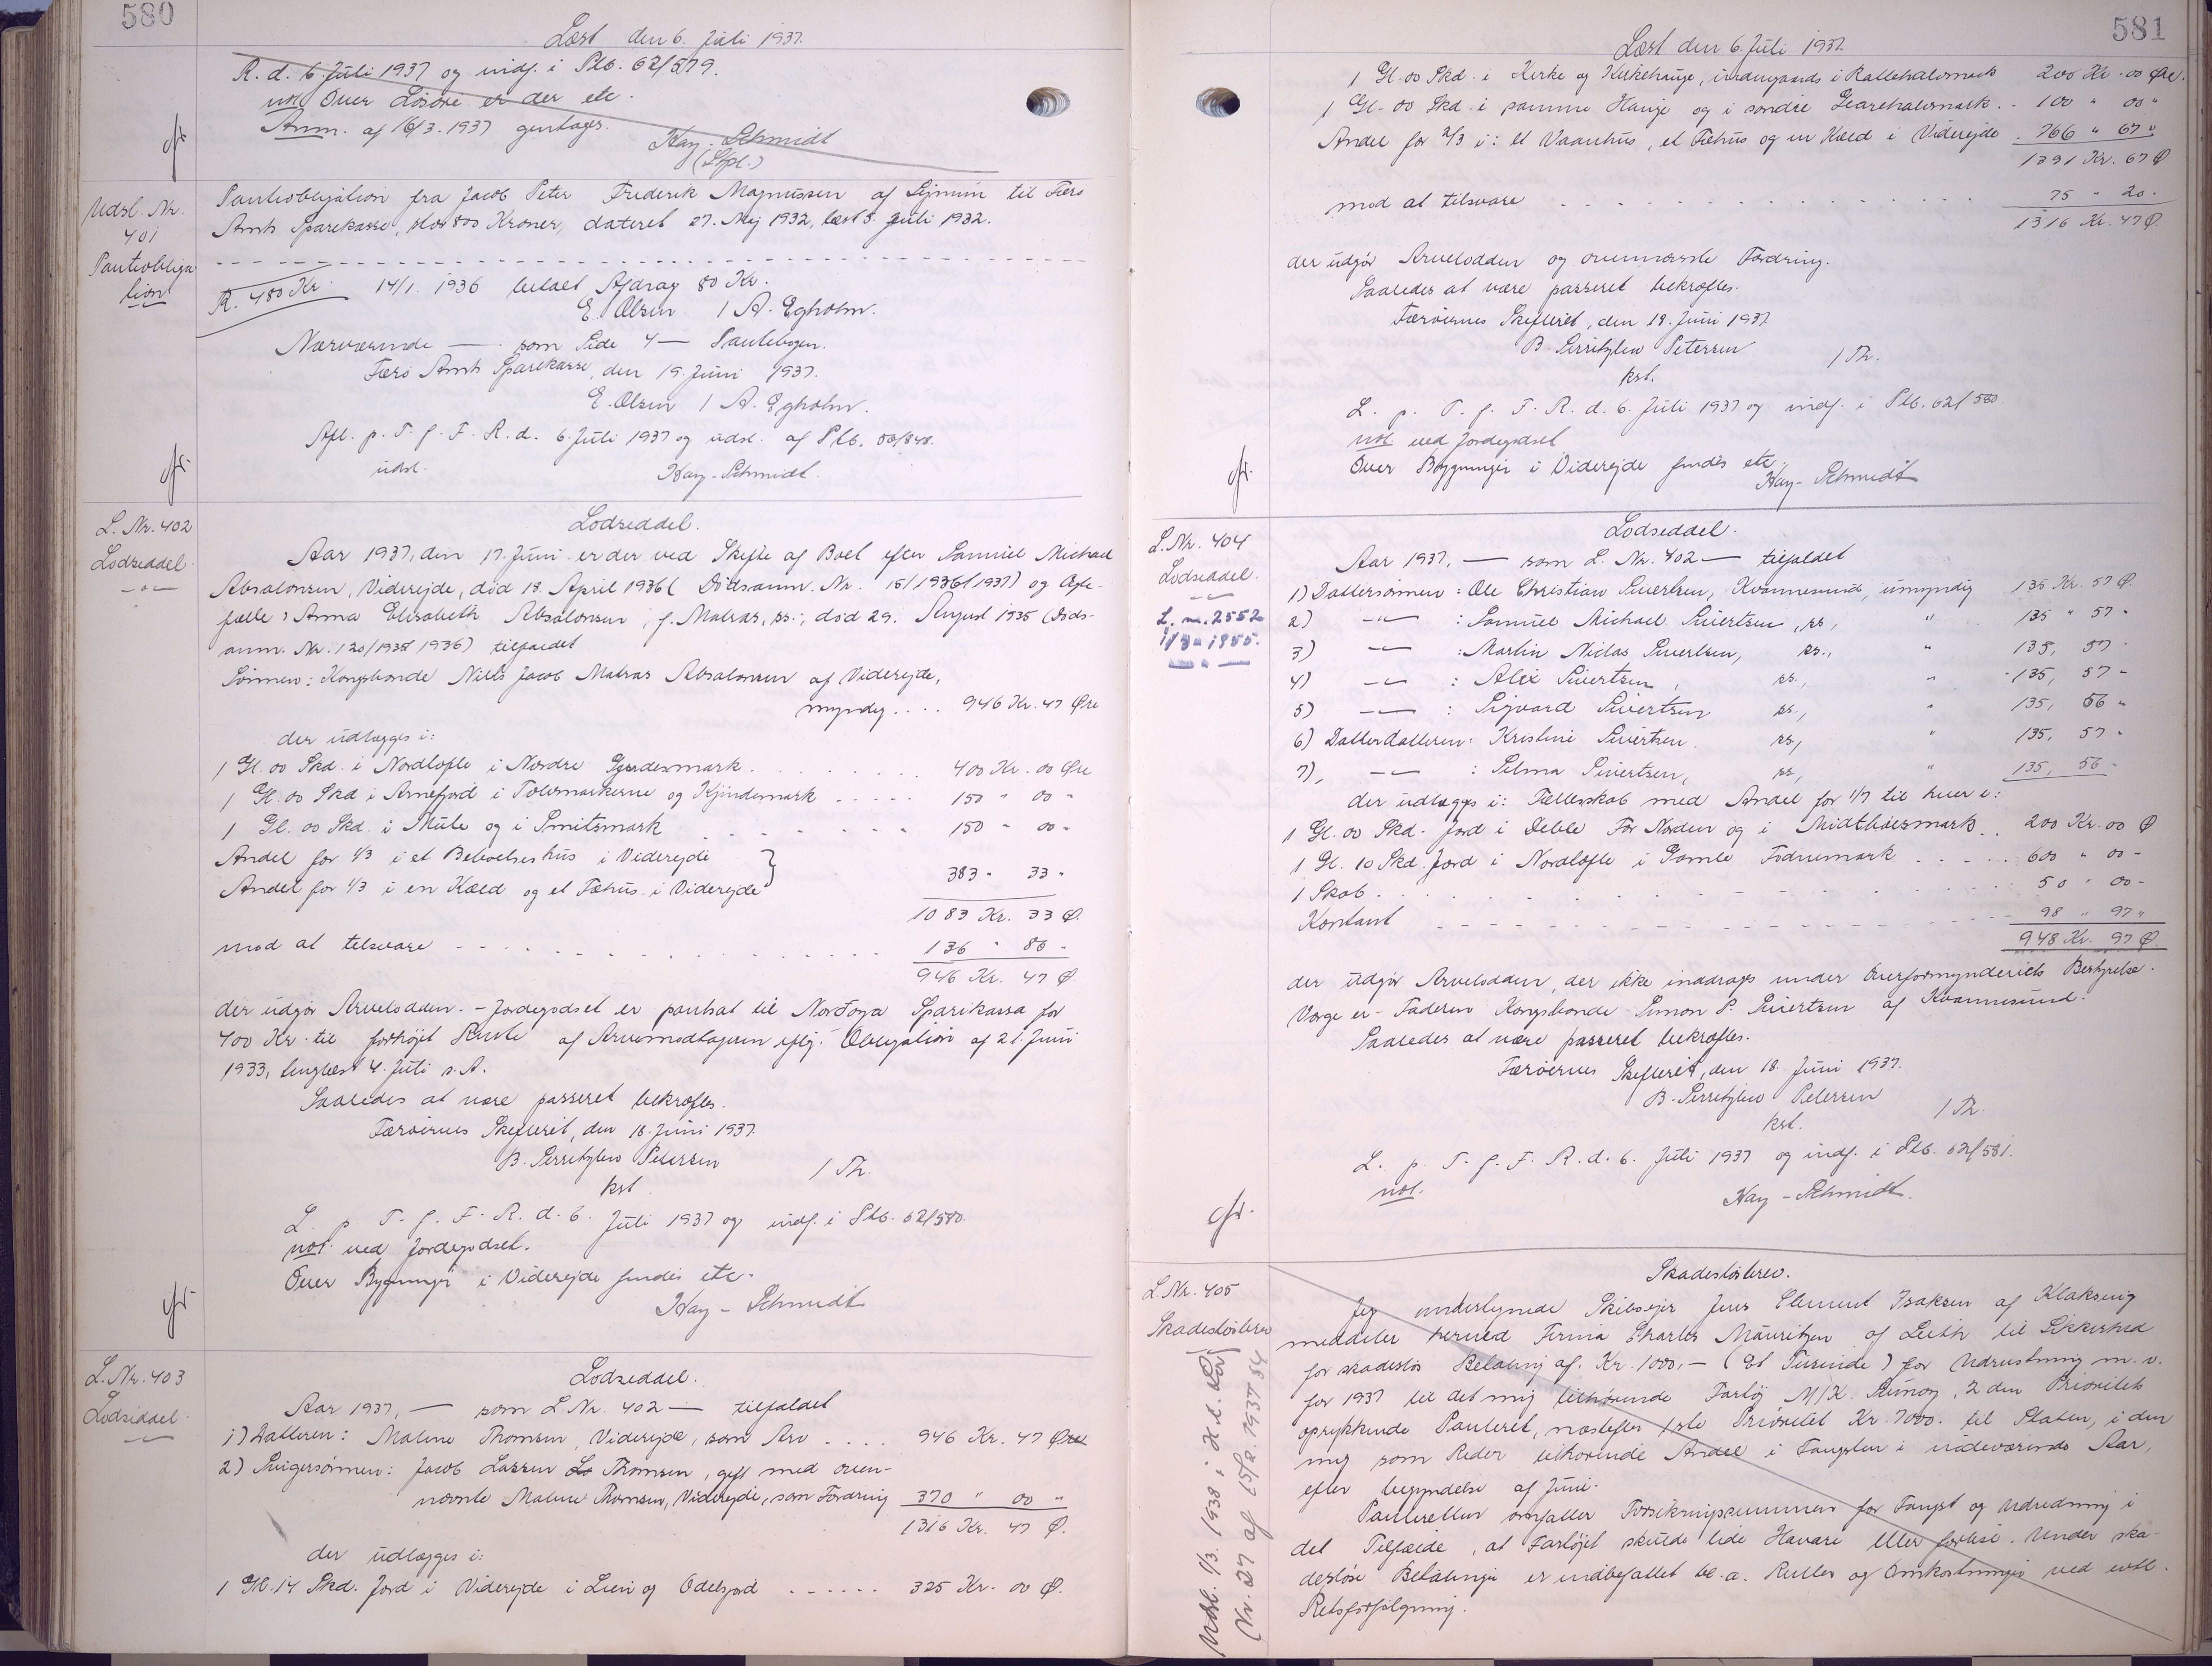 580
Læst den 6. Juli 1937.
R. d. 6. Juli 1937 og indf. i Ptb. 62/579.
not. Over Løsøre er der etc.
Anm. af 16/3. 1937 gentages.
Kay-Schmidt
(Stpl.)
Udsl. Nr.
401
Panteobliga-
tion
Panteobligation fra Jacob Peter Frederik Magnussen af Lejnum til Færø
Amts Sparekasse, stor 800 Kroner, dateret 27. Maj 1932, læst 5. Juli 1932.
R. 480 Kr. 14/1. 1936 betalt Afdrag 80 Kr.
E. Olsen / A. Egholm.
Nærværende — som Side 4 — Pantebogen.
Færø Amts Sparekasse, den 19. Juni 1937.
E. Olsen / A. Egholm.
Afl. p. T. f. F. R. d. 6. Juli 1937 og udsl. af Ptb.
udsl.
Kay-Schmidt.
L. Nr. 402
Lodseddel.
Lodseddel.
Aar 1937, den 17. Juni er der ved Skifte af Boet efter Samuel Michael
Absalonsen, Viderejde, død 18. April 1936 (Dødsanm. Nr. 15/1936/1937) og Ægte-
fælle: Anna Elisabeth Absalonsen, f. Matras, ss., død 29. August 1935 (Døds-
anm. Nr. 120/1935/1936) tilfaldet
Sønnen: Kongsbonde Niels Jacob Matras Absalonsen af Viderejde,
myndig .... 946 Kr. 47 Øre
der udlægges i:
1 Gl. 00 Skd. i Nordtofte i Nordre Gerdesmark . . . 400 Kr. 00 Øre
1 Gl. 00 Skd i Arnefjord i Toftemarkerne og Kjindemark ..... 150 " 00 "
1 Gl. 00 Skd. i Mule og i Smitsmark . . . 150 " 00 "
Andel for 1/3 i et Beboelseshus i Viderejde }
Andel for 1/3 i en Kæld og et Fæhus i Viderejde } 383 " 33 "
1083 Kr. 33 Ø.
mod at tilsvare . . . 136 " 86 "
946 Kr. 47 Ø
der udgør Arvelodden. - Jordegodset er pantsat til Norðoya Sparikassa for
400 Kr. til forhøjet Rente af Arvemodtageren iflg. Obligation af 21. Juni
1933, tinglæst 4. Juli s. A.
Saaledes at være passeret bekræftes.
Færøernes Skifteret, den 18. Juni 1937.
B. Serritzlew Petersen / Th.
kst.
L. p. T. f. F. R. d. 6. Juli 1937 og indf. i Ptb. 62/580.
not. ved Jordegodset.
Over Bygninger i Viderejde findes etc.
Kay-Schmidt
L. Nr. 403
Lodseddel.
Lodseddel.
Aar 1937, — som L. Nr. 402 — tilfaldet
1) Datteren: Malene Thomsen, Viderejde, som Arv .... 946 Kr. 47 Øre
2) Svigersønnen: Jacob Lassen Thomsen, gift med oven-
nævnte Malene Thomsen, Viderejde, som Fordring 370 " 00 "
1316 Kr. 47 Ø.
der udlægges i:
1 Gl. 14 Skd. Jord i Viderejde i Lien og Odelsjord ...... 325 Kr. 00 Ø.
581
Læst den 6. Juli 1937.
1 Gl. 00 Skd. i Kirke og Kirkehauge, i Rattehalsmark 200 Kr. 00 Øre.
1 Gl. 00 Skd. i samme Hauge og i søndre Gearehalsmark. - 100 " 00 "
Andel for 2/3 i: et Vaanhus, et Fæhus og en Kæld i Viderejde . 766 " 67 "
1391 Kr. 67 Ø
mod at tilsvare . . . 75 " 20 "
1316 Kr. 47 Ø.
der udgør Arvelodden og ovennævnte Fordring.
Saaledes at være passeret bekræftes.
Færøernes Skifteret, den 18. Juni 1937.
B. Serritzlew Petersen / Th.
kst.
L. p. T. f. F. R. d. 6. Juli 1937 og indf. i Ptb. 62/580.
not. ved Jordegodset
Over Bygninger i Viderejde findes etc.
Kay-Schmidt
L. Nr. 404
Lodseddel.
L. nr. 2552
1955.
Lodseddel.
Aar 1937, — som L. Nr. 402 — tilfaldet
1) Dattersønnen: Ole Christian Sivertsen, Kvannesund, umyndig 135 Kr. 57 Ø.
2) —"— : Samuel Michael Sivertsen, ss., " 135 " 57 "
3) —"— : Martin Niclas Sivertsen, ss., " 135, 57 "
4) —"— : Alex Sivertsen, ss., " 135, 57 "
5) —"— : Sigvard Sivertsen ss., " 135, 56 "
6) Datterdatteren: Kristine Sivertsen. ss., " 135, 57 "
7) —"— : Selma Sivertsen, ss, " 135, 56 "
der udlægges i: Fællesskab med Andel for 1/7 til hver i:
1 Gl. 00 Skd. Jord i Deble For Norden og i Midthúsmark . . 200 Kr. 00 Ø
1 Gl. 10 Skd. Jord i Nordtofte i Gamle Fodnemark ..... 600 " 00 "
1 Skab . . . 50 " 00 "
Kontant . . . 98 " 97 "
948 Kr. 97 Ø.
der udgør Arvelodden, der ikke inddrages under Overformynderiets Bestyrelse.
Værge er Faderen Kongsbonde Simon P. Sivertsen af Kvannesund.
Saaledes at være passeret bekræftes.
Færøernes Skifteret, den 18. Juni 1937.
B. Serritzlew Petersen / Th.
kst.
L. p. T. f. F. R. d. 6. Juli 1937 og indf. i Ptb. 62/581.
not.
Kay-Schmidt.
L. Nr. 405
Skadesløsbrev
Udsl. 1/3. 1938 i H. t. Lov
(Nr. 27 af 15/2. 1937 § 4
Skadesløsbrev.
Jeg undertegnede Skibsejer Jens Clement Isaksen af Klaksvig
meddeler herved Firma Charles Mauritzen af Leith til Sikkerhed
for skadesløs Betaling af Kr. 1000,- (Et Tusinde) for Udrustning m. v.
for 1937 til det mig tilhørende Fartøj M/K. Svinoy, 2den Prioritets
oprykkende Panteret, næstefter 1ste Prioritet Kr. 7000. til Staten, i den
mig som Reder tilkommende Andel i Fangsten i indeværende Aar,
efter begyndelse af Juni.
Panteretten omfatter Forsikringssummen for Fangst og Udredning i
det Tilfælde, at Fartøjet skulde lide Havari eller forlise. Under ska-
desløse Betalinger er indbefattet bl. a. Renter og Omkostninger ved evtl.
Retsforfølgning.